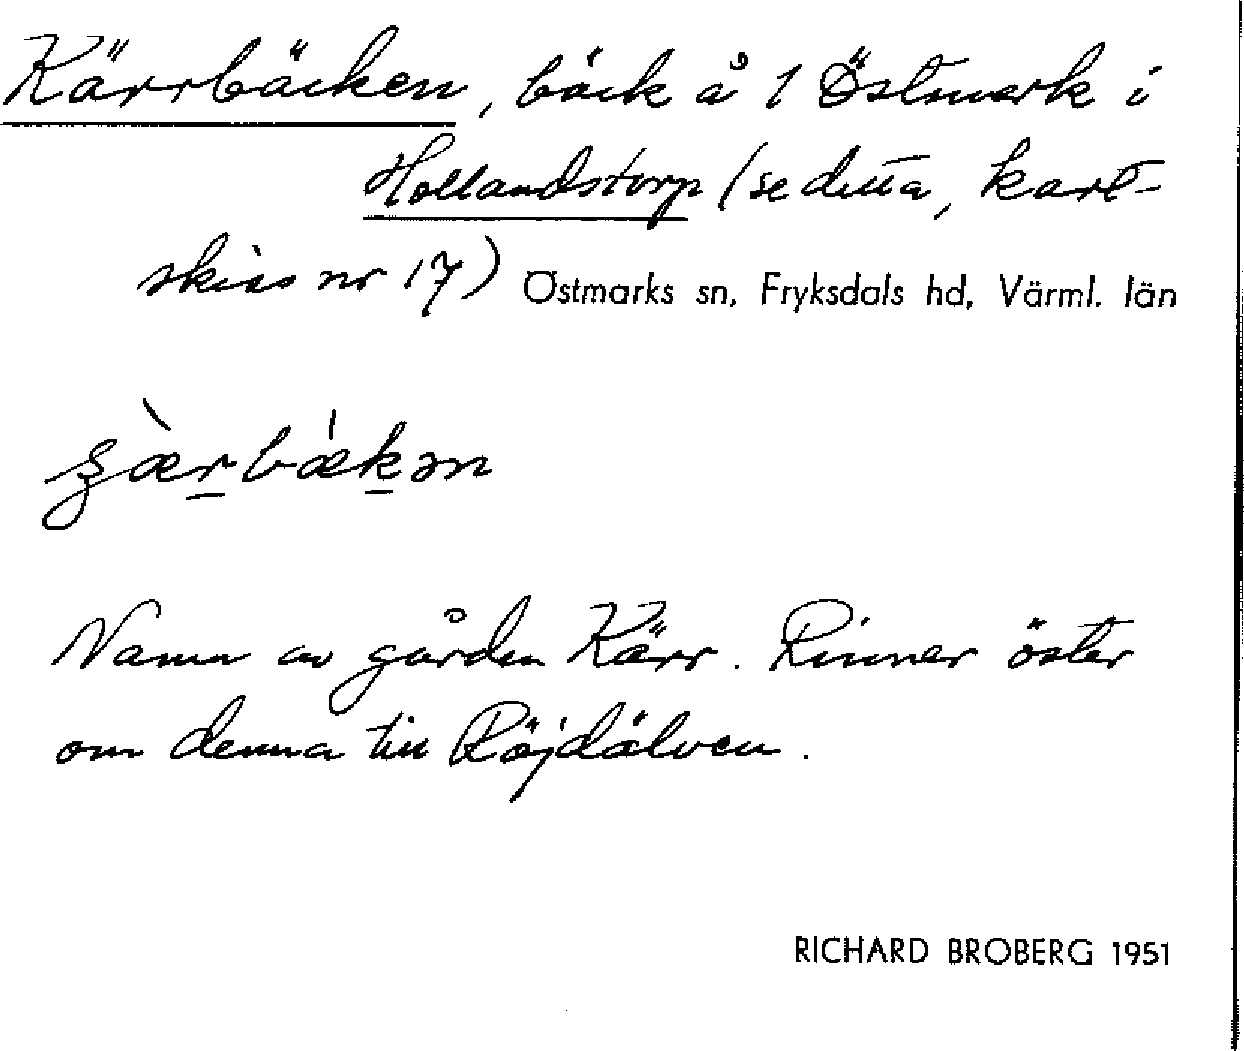 Kärrbäcken, bäck å 1 Östmark i
Hollandstorp (se detta, kart-
skiss nr 17) Östmarks sn, Fryksdals hd, Värml. län
Namn av gården Kärr. Rinner öster
om denna till Röjdälven.
RICHARD BROBERG 1951